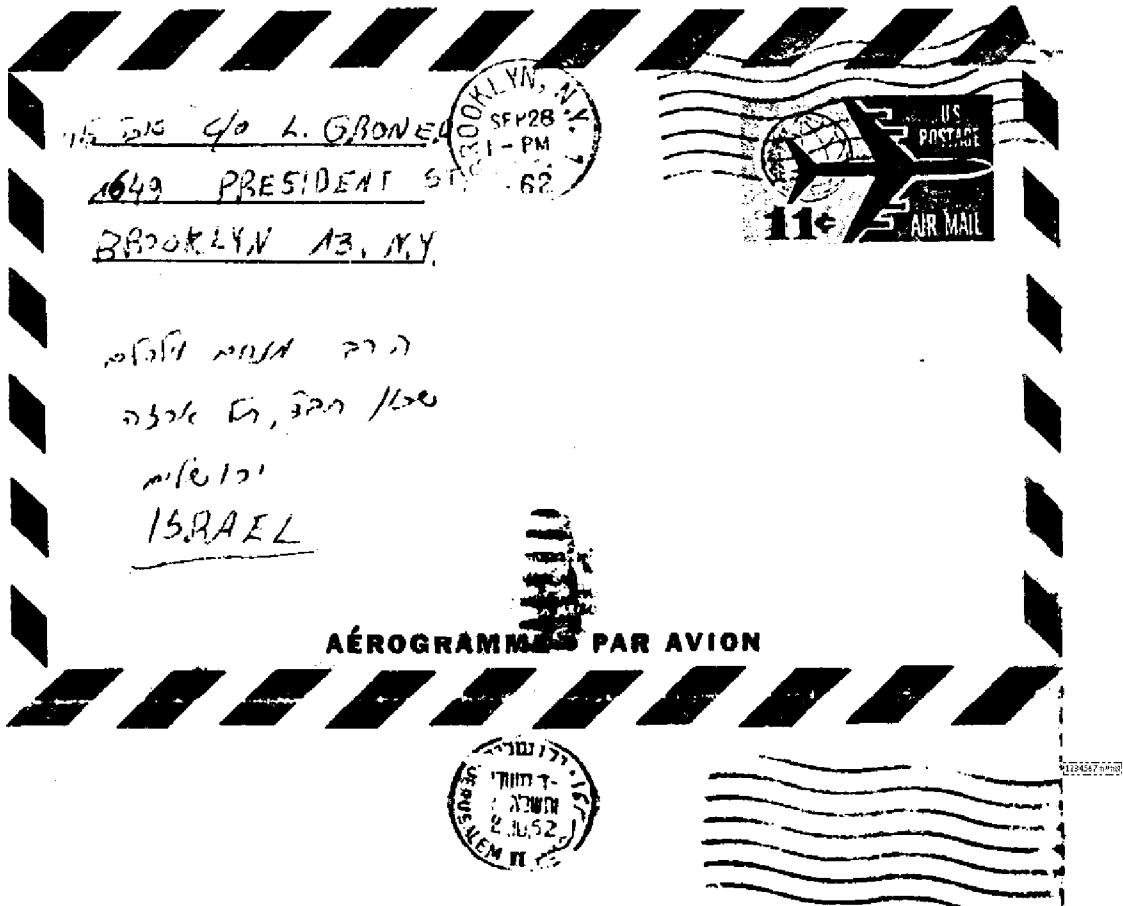 c/o L. GRONER
1649 PRESIDENT ST.
BROOKLYN 13, N.Y.
BROOKLYN, N.Y.
SEP 28
1 - PM
62
U.S.
POSTAGE
11¢
AIR MAIL
הרב מנחם
שכון חבד, תל ארזה
ירושלים
ISRAEL
AÉROGRAMME PAR AVION
JERUSALEM